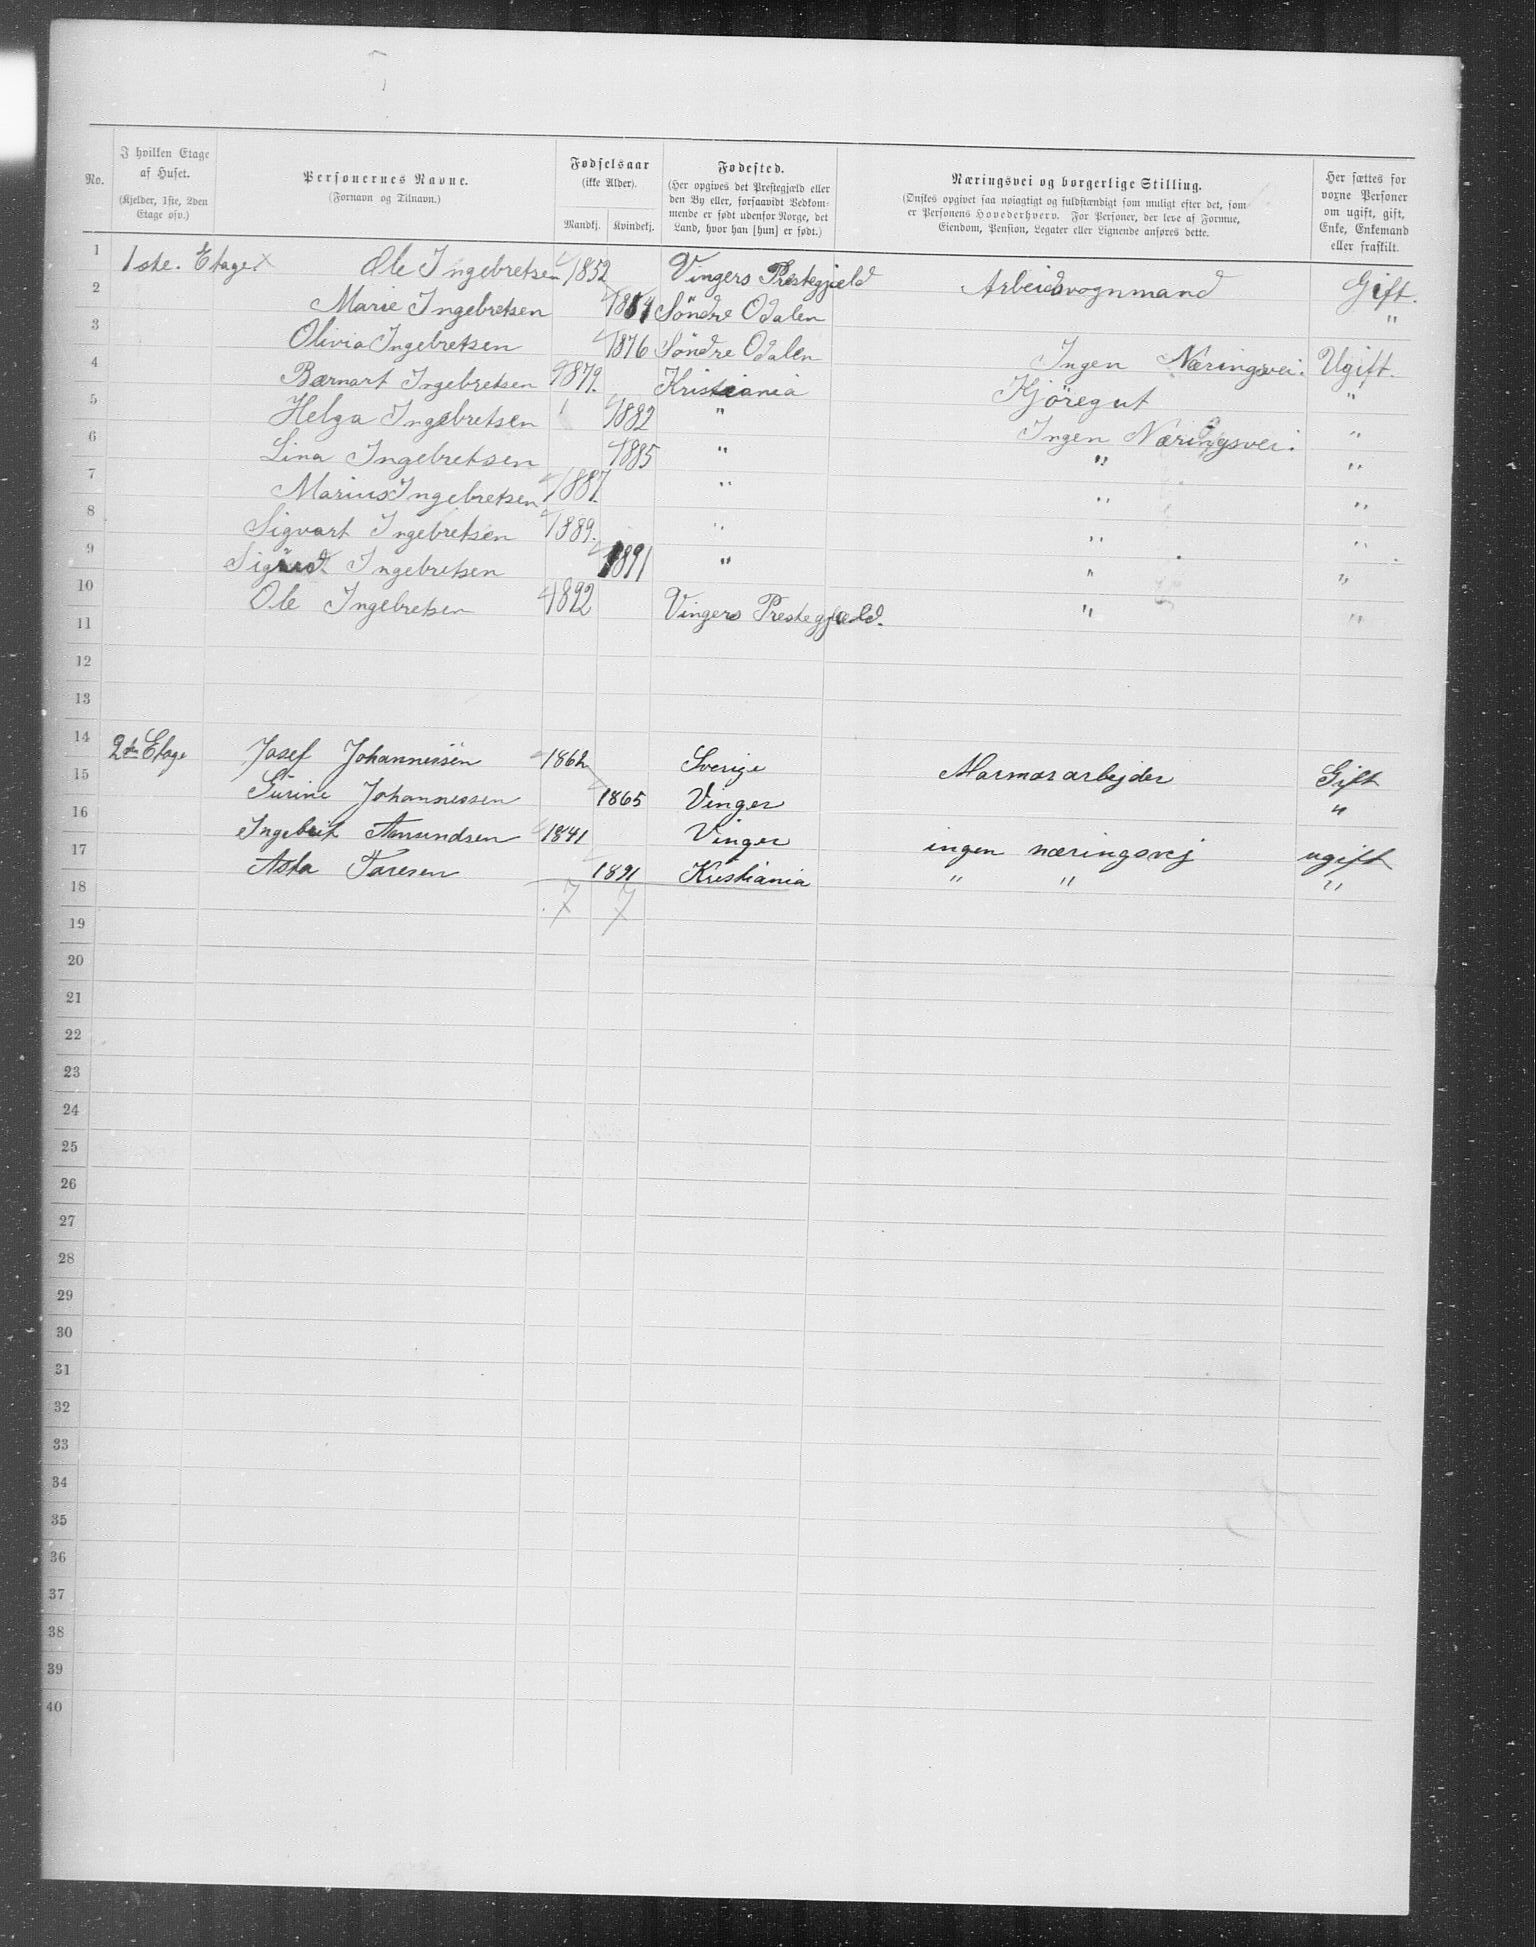 No. | I hvilken Etage af Huset. (Kjelder, 1ste, 2den Etage osv.) | Personernes Navne. (Fornavn og Tilnavn.) | Fødselsaar (ikke Alder). Mandkj. Kvindekj. | Fødested. (Her opgives det Prestegjæld eller den By eller, forsaavidt Vedkommende er født udenfor Norge, det Land, hvor han [hun] er født.) | Næringsvei og borgerlige Stilling. (Ønskes opgivet saa nøiagtigt og fuldstændigt som muligt efter det, som er Personens Hovederhverv. For Personer, der leve af Formue, Eiendom, Pension, Legater eller Lignende anføres dette. | Her sættes for voxne Personer om ugift, gift, Enke, Enkemand eller fraskilt.
1 1ste. Etage. x Ole Ingebretsen 1852 Vingers Prestegjield Arbeidsvognmand Gift.
2 Marie Ingebretsen 1854 Söndre Odalen "
3 Olivia Ingebretsen 1876 Söndre Odalen Ingen Næringsvei. Ugift.
4 Bærnart Ingebretsen 1879. Kristiania Kjöregut "
5 Helga Ingebretsen 1882 " Ingen Næringsvei. "
6 Lina Ingebretsen 1885 " " "
7 Marius Ingebretsen 1887. " " "
8 Sigvart Ingebretsen 1889. " " "
9 Ingebretsen 1891 " " "
10 Ole Ingebretsen 1892 Vingers Prestegjæld. " "
11
12
13
14 2den Etage Josef Johannessen 1862 Sverige Marmorarbejder Gift
15 Gurine Johannessen 1865 Vinger "
16 Ingebrit Amundsen 1841 Vinger ingen næringsvej ugift
17 Asta Taresen 1891 Kristiania " " "
18 7 7
19
20
21
22
23
24
25
26
27
28
29
30
31
32
33
34
35
36
37
38
39
40